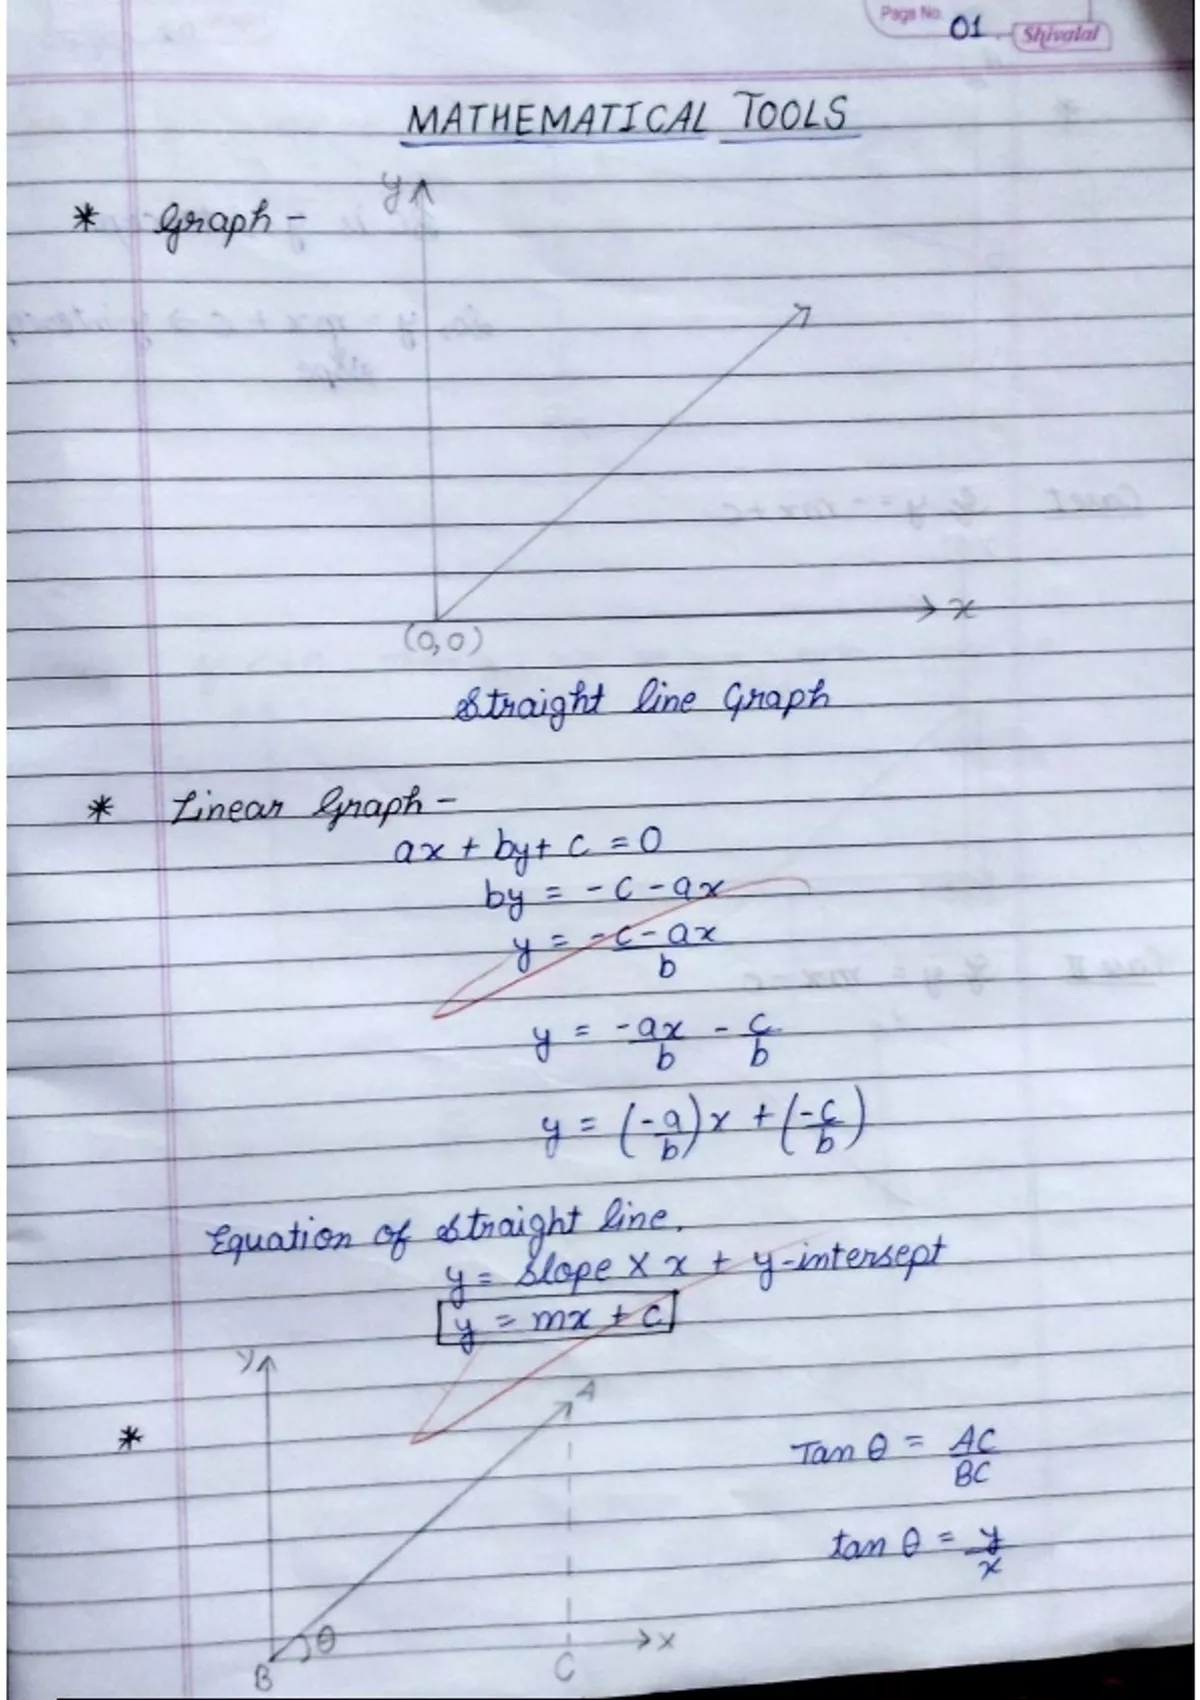 Page No. 01
Shivalal
MATHEMATICAL TOOLS
* Graph -
y
x
(0,0)
Straight line Graph
* Linear Graph -
ax + by + c = 0
by = -c - ax
y = -c - ax / b
y = -ax/b - c/b
y = (-a/b)x + (-c/b)
Equation of straight line.
y = slope × x + y-intersept
y = mx + c
y
A
*
Tan θ = AC/BC
tan θ = y/x
θ
x
B
C